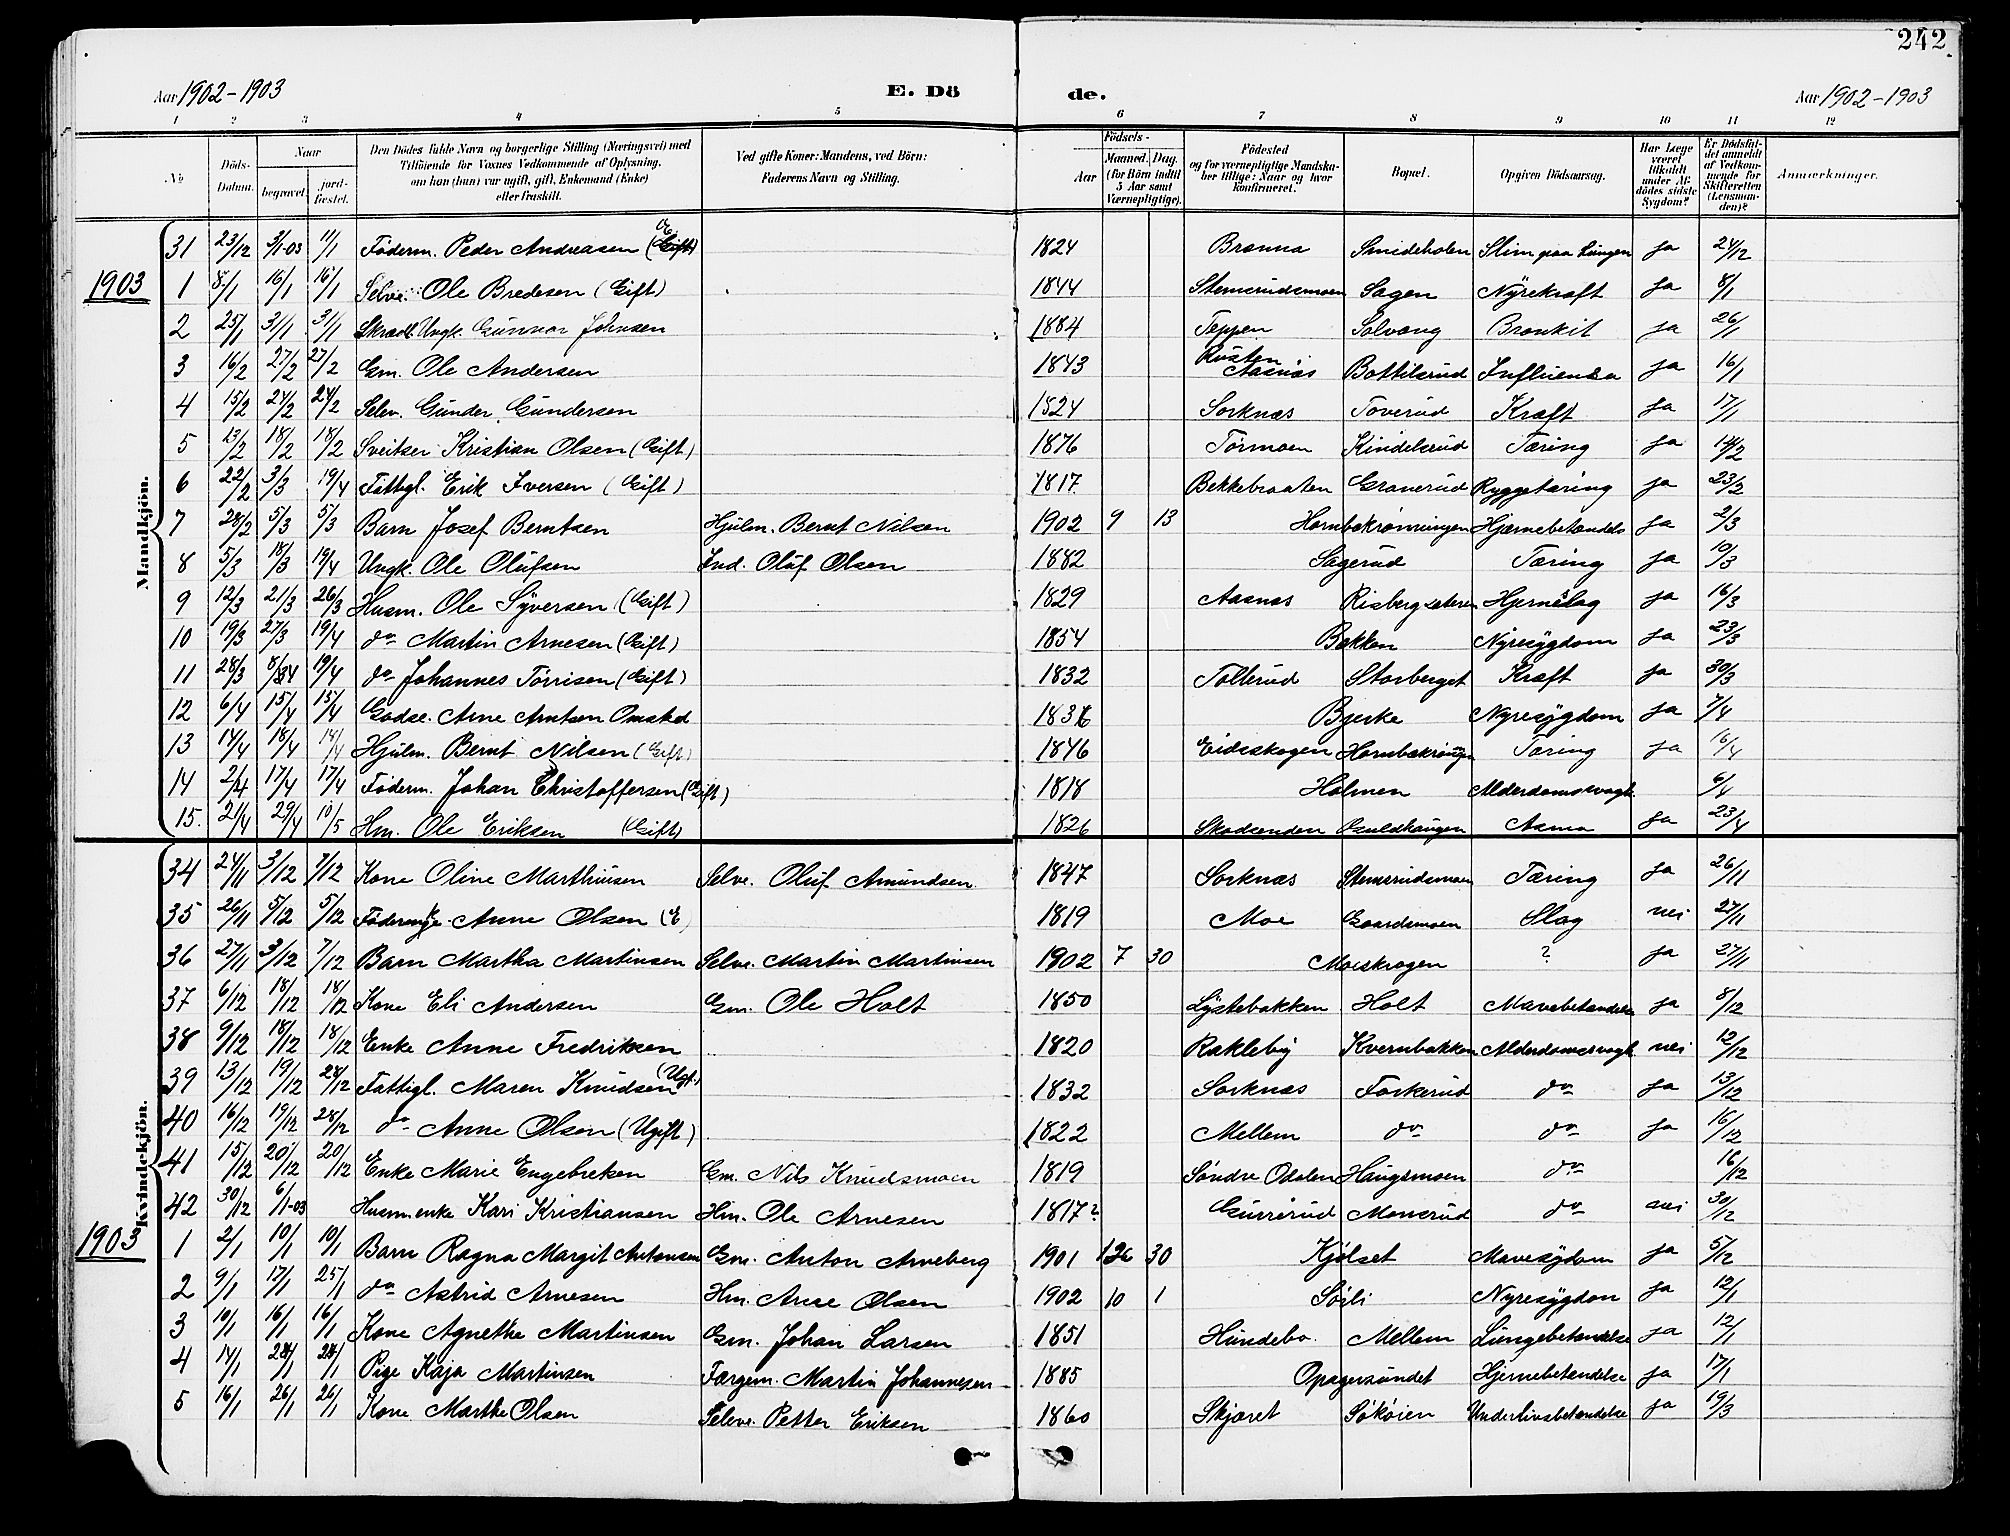 242
Aar 1902-1903 E. Dö de. Aar 1902-1903
1 2 3 4 5 6 7 8 9 10 11 12
№ Döds-Datum. Naar begravet. jordfæstet. Den Dödes fulde Navn og borgerlige Stilling (Næringsvei) med Tilföiende for Voxnes Vedkommende af Oplysning, om han (hun) var ugift, gift, Enkemand (Enke) eller fraskilt. Ved gifte Koner: Mandens, ved Börn: Faderens Navn og Stilling. Födsels- Aar Maaned. Dag. (for Börn indtil 5 Aar samt Værnepligtige). Födested og for værnepligtige Mandskaber tillige: Naar og hvor konfirmeret. Bopæl. Opgiven Dödsaarsag. Har Læge været tilkaldt under Afdödes sidste Sygdom? Er Dödsfaldet anmeldt af Vedkommende for Skifteretten (Lensmanden)? Anmærkninger.
Mandkjön.
31 23/12 3/1-03 11/1 Föderm. Peder Andreasen 1824 Brænna Smideholen Slim paa Lungen ja 24/12
1903
1 8/1 16/1 16/1 Selve. Ole Bredesen (Gift) 1844 Stemsrudsmoen Sagen Nyrekræft Ja 8/1
2 25/1 31/1 31/1 Skræd. Ungk. Gunnar Johnsen 1884 Teppen Solvang Bronkit ja 26/1
3 16/2 27/2 27/2 Gm. Ole Andersen 1843 Rusten Aasnæs Bottilsrud Influensa ja 16/1
4 15/2 24/2 24/2 Selv. Gunder Gundersen 1824 Sorknæs Toverud Kræft Ja 17/1
5 13/2 18/2 18/2 Sveitser Kristian Olsen (Gift) 1876 Törmoen Kindelsrud Tæring ja 14/2
6 22/2 3/3 19/4 Fattigl. Erik Iversen (Gift) 1817 Bekkebraaten Granerud Ryggetæring ja 23/2
7 28/2 5/3 5/3 Barn Josef Berntsen Hjulm. Bernt Nilsen 1902 9 13 Hornbækrönningen Hjernebetændels ja 2/3
8 5/3 18/3 19/4 Ungk. Ole Olufsen Ind. Oluf Olsen 1882 Sagerud Tæring ja 10/3
9 12/3 21/3 26/3 Husm. Ole Syversen (Gift) 1829 Aasnæs Risbergsæteren Hjerneslag ja 16/3
10 19/3 27/3 19/4 do Martin Arnesen (Gift) 1854 Bakken Nyresygdom ja 23/3
11 28/3 19/4 do Johannes Törrisen (Gift) 1832 Tollerud Storberget Kræft ja 30/3
12 6/4 15/4 15/4 Godse. Arne Arntsen Omsted Bjerke Nyresygdom ja 7/4
13 14/4 18/4 18/4 Hjulm. Bernt Nilsen (Gift) 1846 Eidsskogen Tæring ja 16/4
14 2/4 17/4 17/4 Föderm. Johan Christoffersen (Gift) 1818 Holmen Alderdomssvagh. 6/4
15. 21/4 29/4 10/5 Hm. Ole Eriksen (Gift) 1826 Skadsenden Guldhaugen Asma ja 23/4
Kvindekjön.
34 24/11 3/12 7/12 Kone Oline Marthinsen Selve. Oluf Amundsen 1847 Sorknæs Stemsrudsmoen Tæring ja 26/11
35 26/11 5/12 5/12 Föderenke. Anne Olsen (E) 1819 Moe Gaardsmoen Slag nei 27/11
36 27/11 3/12 7/12 Barn Martha Martinsen Selve. Martin Martinsen 1902 7 30 Moeskrogen ? ja 27/11
37 6/12 18/12 18/12 Kone Eli Andersen Gm. Ole Holt 1850 Lystebakken Holt Mavebetændelse ja 8/12
38 9/12 18/12 18/12 Enke Anne Fredriksen 1820 Rakleby Kvernbakken Alderdomssvagh nei 12/12
39 13/12 19/12 28/12 Fattigl. Maren Knudsen (Ugt.) 1832 Sorknæs Forkerud do ja 13/12
40 16/12 19/12 28/12 do Anne Olsen (Ugift) 1822 Mellem do do ja 16/12
41 15/12 20/12 20/12 Enke Marie Engebretsen Gm. Nils Knudsmoen 1819 Söndre Odalen Haugsmoen do 16/12
42 30/12 6/1-03 Husm.enke Kari Kristiansen Hm. Ole Arnesen 1817? Gurrerud Monsrud do nei 30/12
1903
1 2/1 10/1 10/1 Barn Ragna Margit Antonsen Gm. Anton Arneberg 1901 30 Kjölset Mavesygdom ja 5/12
2 9/1 17/1 25/1 do Astrid Arnesen Hm. Arne Olsen 1902 10 1 Söjli Nyresygdon ja 12/1
3 10/1 16/1 16/1 Kone Agnethe Martinsen Gm. Johan Larsen 1851 Hundebo. Mellem Lungebetændelse ja 12/1
4 14/1 24/1 24/1 Pige Kaja Martinsen Færgem. Martin Johannesen 1885 Opagersundet Hjernebetændelse ja 17/1
5 16/1 26/1 26/1 Kone Marthe Olsen Selve. Petter Eriksen 1860 Skjæret Sökoien Underlivsbetændelse ja 19/3